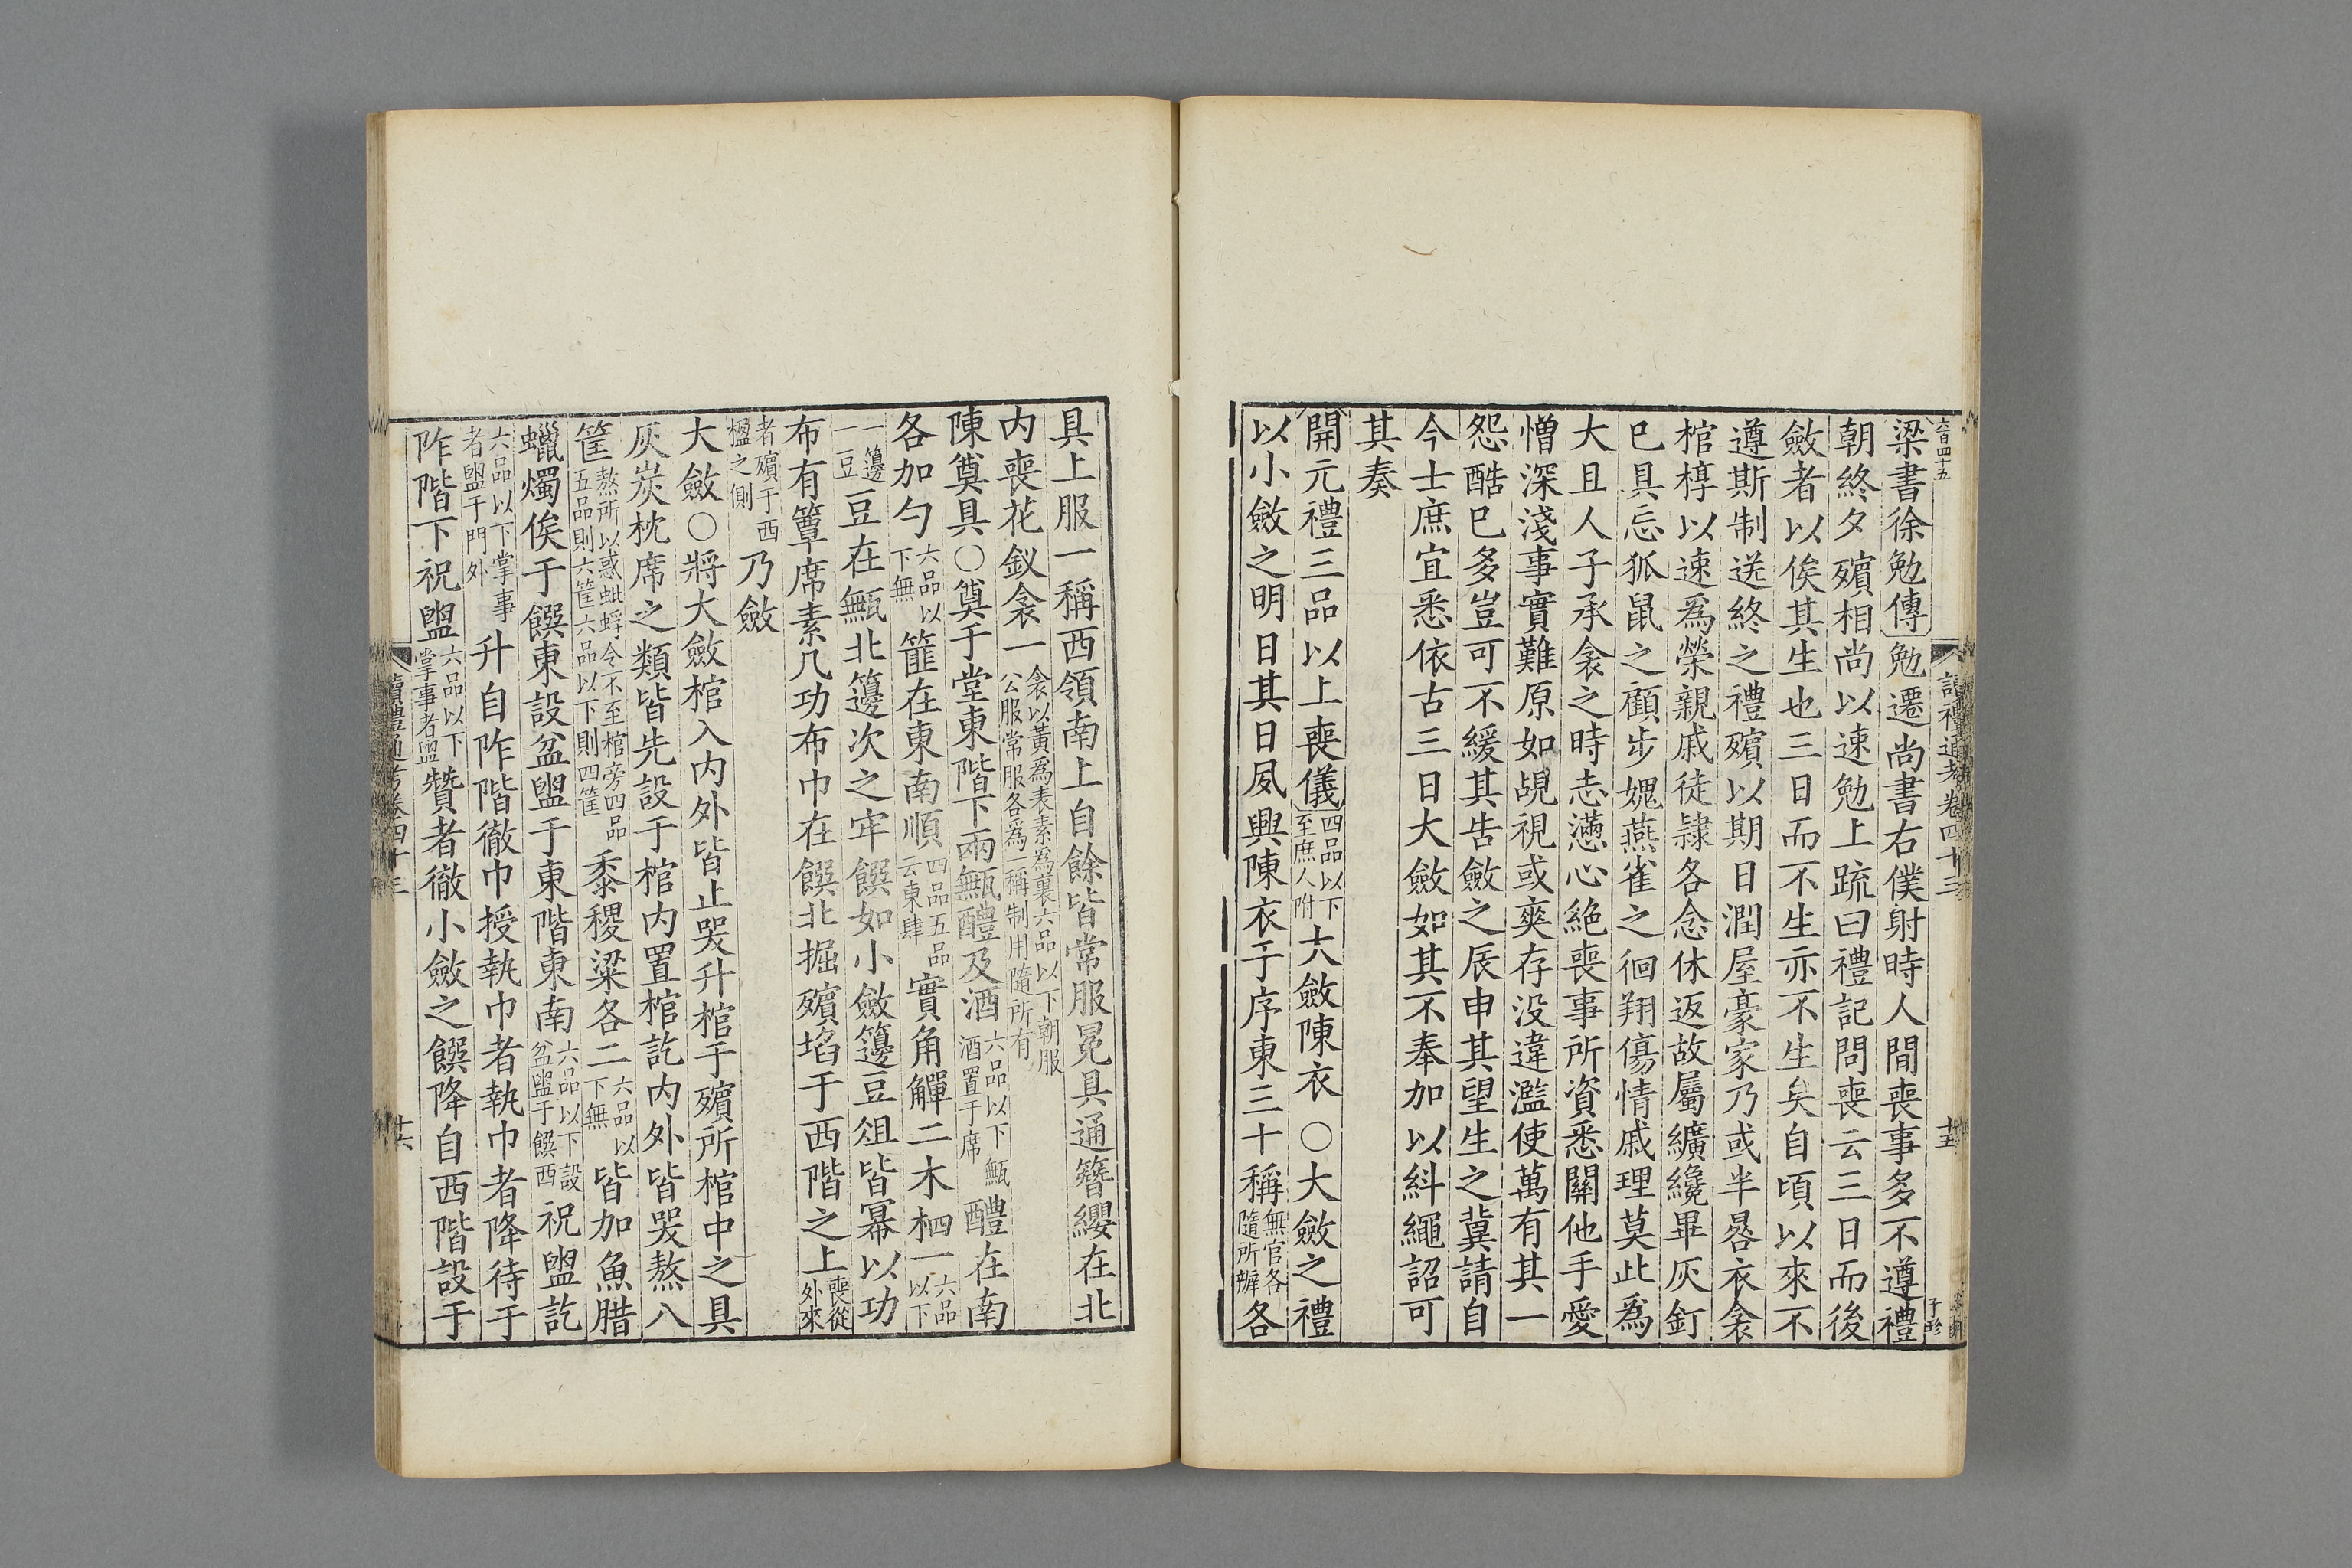 六百四十五
讀禮通考卷四十三
十五
梁書徐勉傳勉遷尚書右僕射時人間喪事多不遵禮
朝終夕殯相尚以速勉上疏曰禮記問喪云三日而後
斂者以俟其生也三日而不生亦不生矣自頃以來不
遵斯制送終之禮殯以期日潤屋豪家乃或半晷衣衾
棺椁以速爲榮親戚徒隸各念休返故屬纊纔畢灰釘
已具忘狐鼠之顧步媿燕雀之徊翔傷情戚理莫此爲
大且人子承衾之時志懣心絶喪事所資悉關他手愛
憎深淺事實難原如覘視或爽存没違濫使萬有其一
怨酷已多豈可不緩其告斂之辰申其望生之冀請自
今士庶宜悉依古三日大斂如其不奉加以糾繩詔可
其奏
開元禮三品以上喪儀四品以下至庶人附大斂陳衣〇大斂之禮
以小斂之明日其日夙興陳衣于序東三十稱無官各隨所辦各
具上服一稱西領南上自餘皆常服冕具通簪纓在北
内喪花釵衾一衾以黃爲表素爲裏六品以下朝服公服常服各爲一稱制用隨所有
陳奠具〇奠于堂東階下兩甒醴及酒六品以下甒酒置于席醴在南
各加勺六品以下無篚在東南順四品五品云東肆實角觶二木柶一六品以下
一籩一豆豆在甒北籩次之牢饌如小斂籩豆俎皆冪以功
布有簟席素几功布巾在饌北掘殯埳于西階之上喪從外來
者殯于西楹之側乃斂
大斂〇將大斂棺入内外皆止哭升棺于殯所棺中之具
灰炭枕席之類皆先設于棺内置棺訖内外皆哭熬八
筐熬所以惑蚍蜉令不至棺旁四品五品則六筐六品以下則四筐黍稷粱各二六品以下無皆加魚腊
蠟燭俟于饌東設盆盥于東階東南六品以下設盆盥于饌西祝盥訖
六品以下掌事者盥于門外升自阼階徹巾授執巾者執巾者降待于
阼階下祝盥六品以下掌事者盥贊者徹小斂之饌降自西階設于
讀禮通考卷四十三
十六